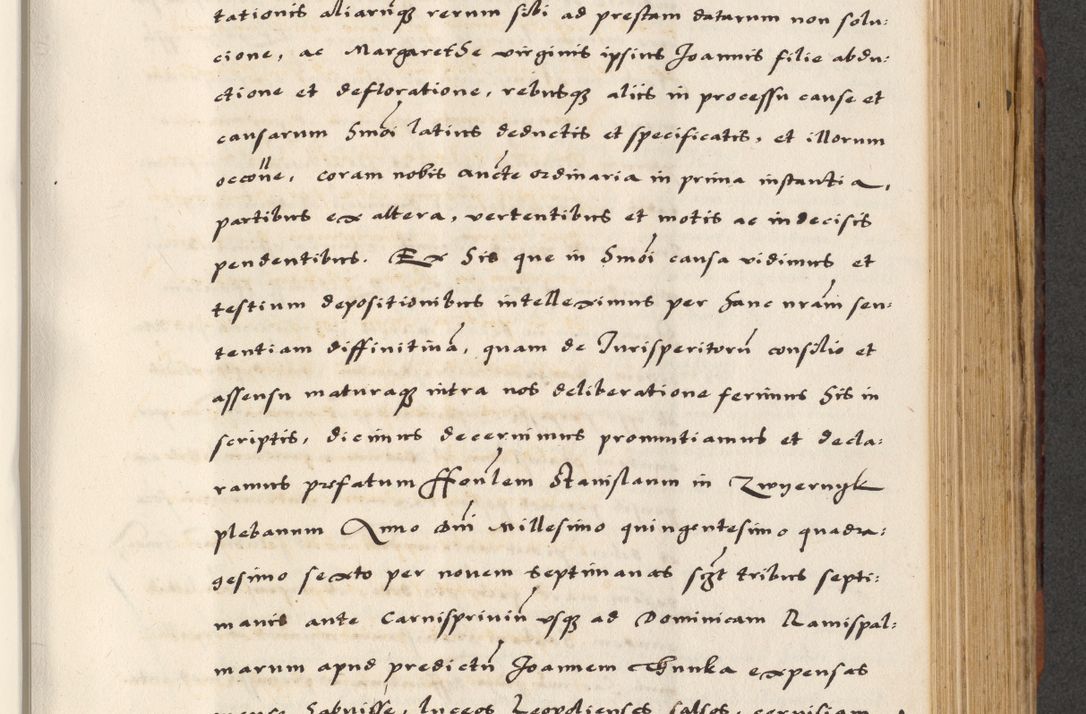 tationis aliarũq̃ rerum sibi ad prestam datarum non solu:
cione, ac Margarethe virginis ipsius Joannis filie abdu:
ctione et defloratione, rebusq̃ aliis in processu cause et
causarum hmõi latius deductis et specificatis, et illorum
occõne, coram nobis aucte ordinaria in prima instantia,
partibus ex altera, vertentibus et motis ac indecisis
pendentibus. Ex his que in hmõi causa vidimus et
testium depositionibus intelleximus per hanc nrãm sen:
tentiam diffinitiuã, quam de Jurisperitorũ consilio et
assensu maturaq̃ intra nos deliberatione ferimus his in
scriptis, dicimus decernimus pronuntiamus et decla:
ramus prefatum ffoũlem Stanislaum in Zwyernyk
plebanum Anno dñi Millesimo quingentesimo quadra:
gesimo sexto per novem septimanas sc̃ꝫt tribus septi:
manis ante Carnispriuiũ vsq̃ ad Dominicam Ramispal:
marum apud predictũ Joannem Chunka expensas
habuisse, luceos Leopolienses salsos, ceruisiam